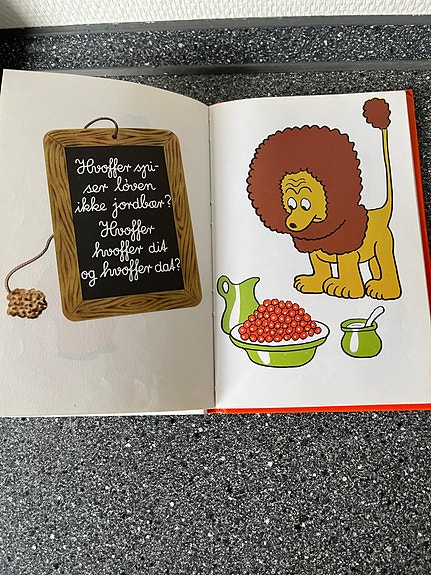 Hvoffer spi-
ser löven
ikke jordbær?
Hvoffer
hvoffer dit
og hvoffer dat?